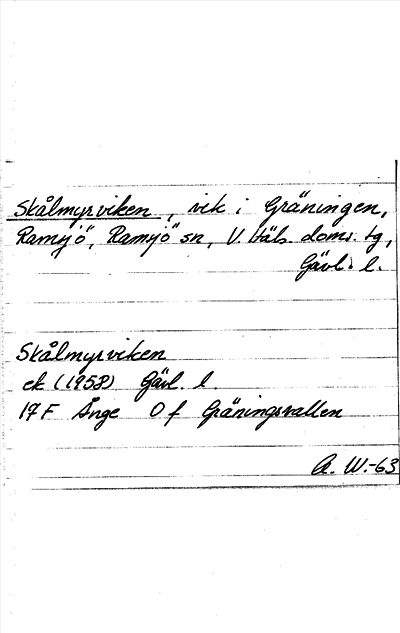 Skålmyrviken, vik i Gräningen,
Ramsjö, Ramsjö sn, V. Häls. doms. tg,
Gävl. l.
Skålmyrviken
ek (1958) Gävl. l.
17 F Ånge 0 f Gräningsvallen
A. W.-63